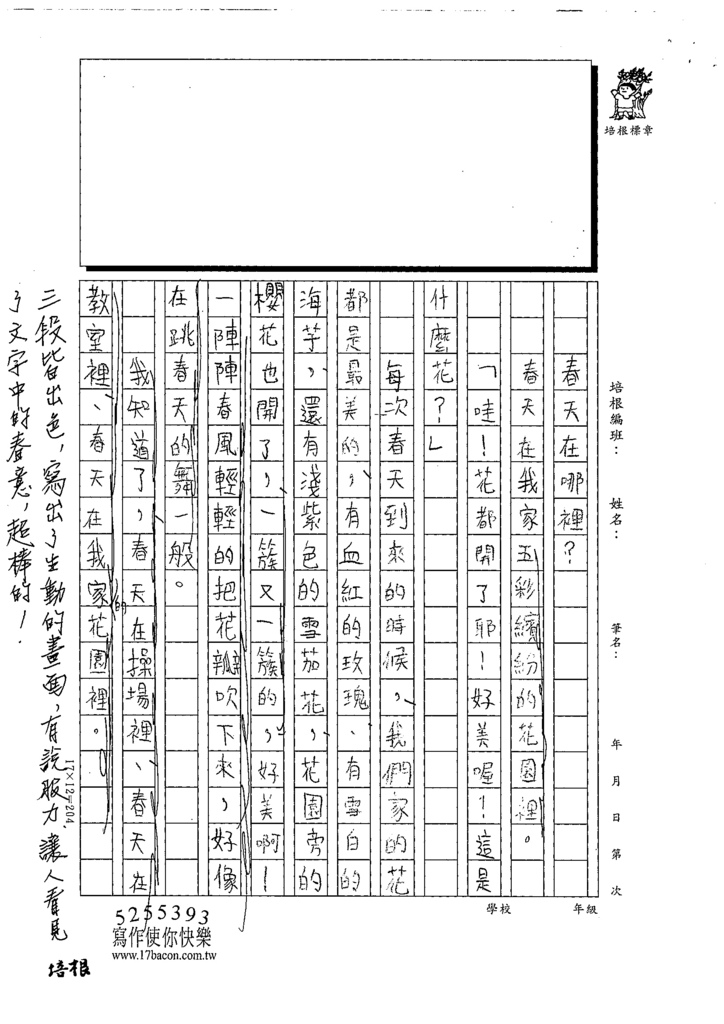 培根標章
培根編班：
姓名：
筆名：
年 月 日 第 次
學校
年級
春天在哪裡？
春天在我家五彩繽紛的花園裡。
「哇！花都開了耶！好美喔！這是
什麼花？」
每次春天到來的時候，我們家的花
都是最美的，有血紅的玫瑰、有雪白的
海芋，還有淺紫色的雪茄花，花園旁的
櫻花也開了，一簇又一簇的，好美啊！
一陣陣春風輕輕的把花瓣吹下來，好像
在跳春天的舞一般。
我知道了，春天在操場裡、春天在
教室裡、春天在我家的花園裡。
17×12=204.
三段皆出色，寫出了生動的畫面，有說服力，讓人看見
了文字中的春意，超棒的！
培根
5255393
寫作使你快樂
www.17bacon.com.tw